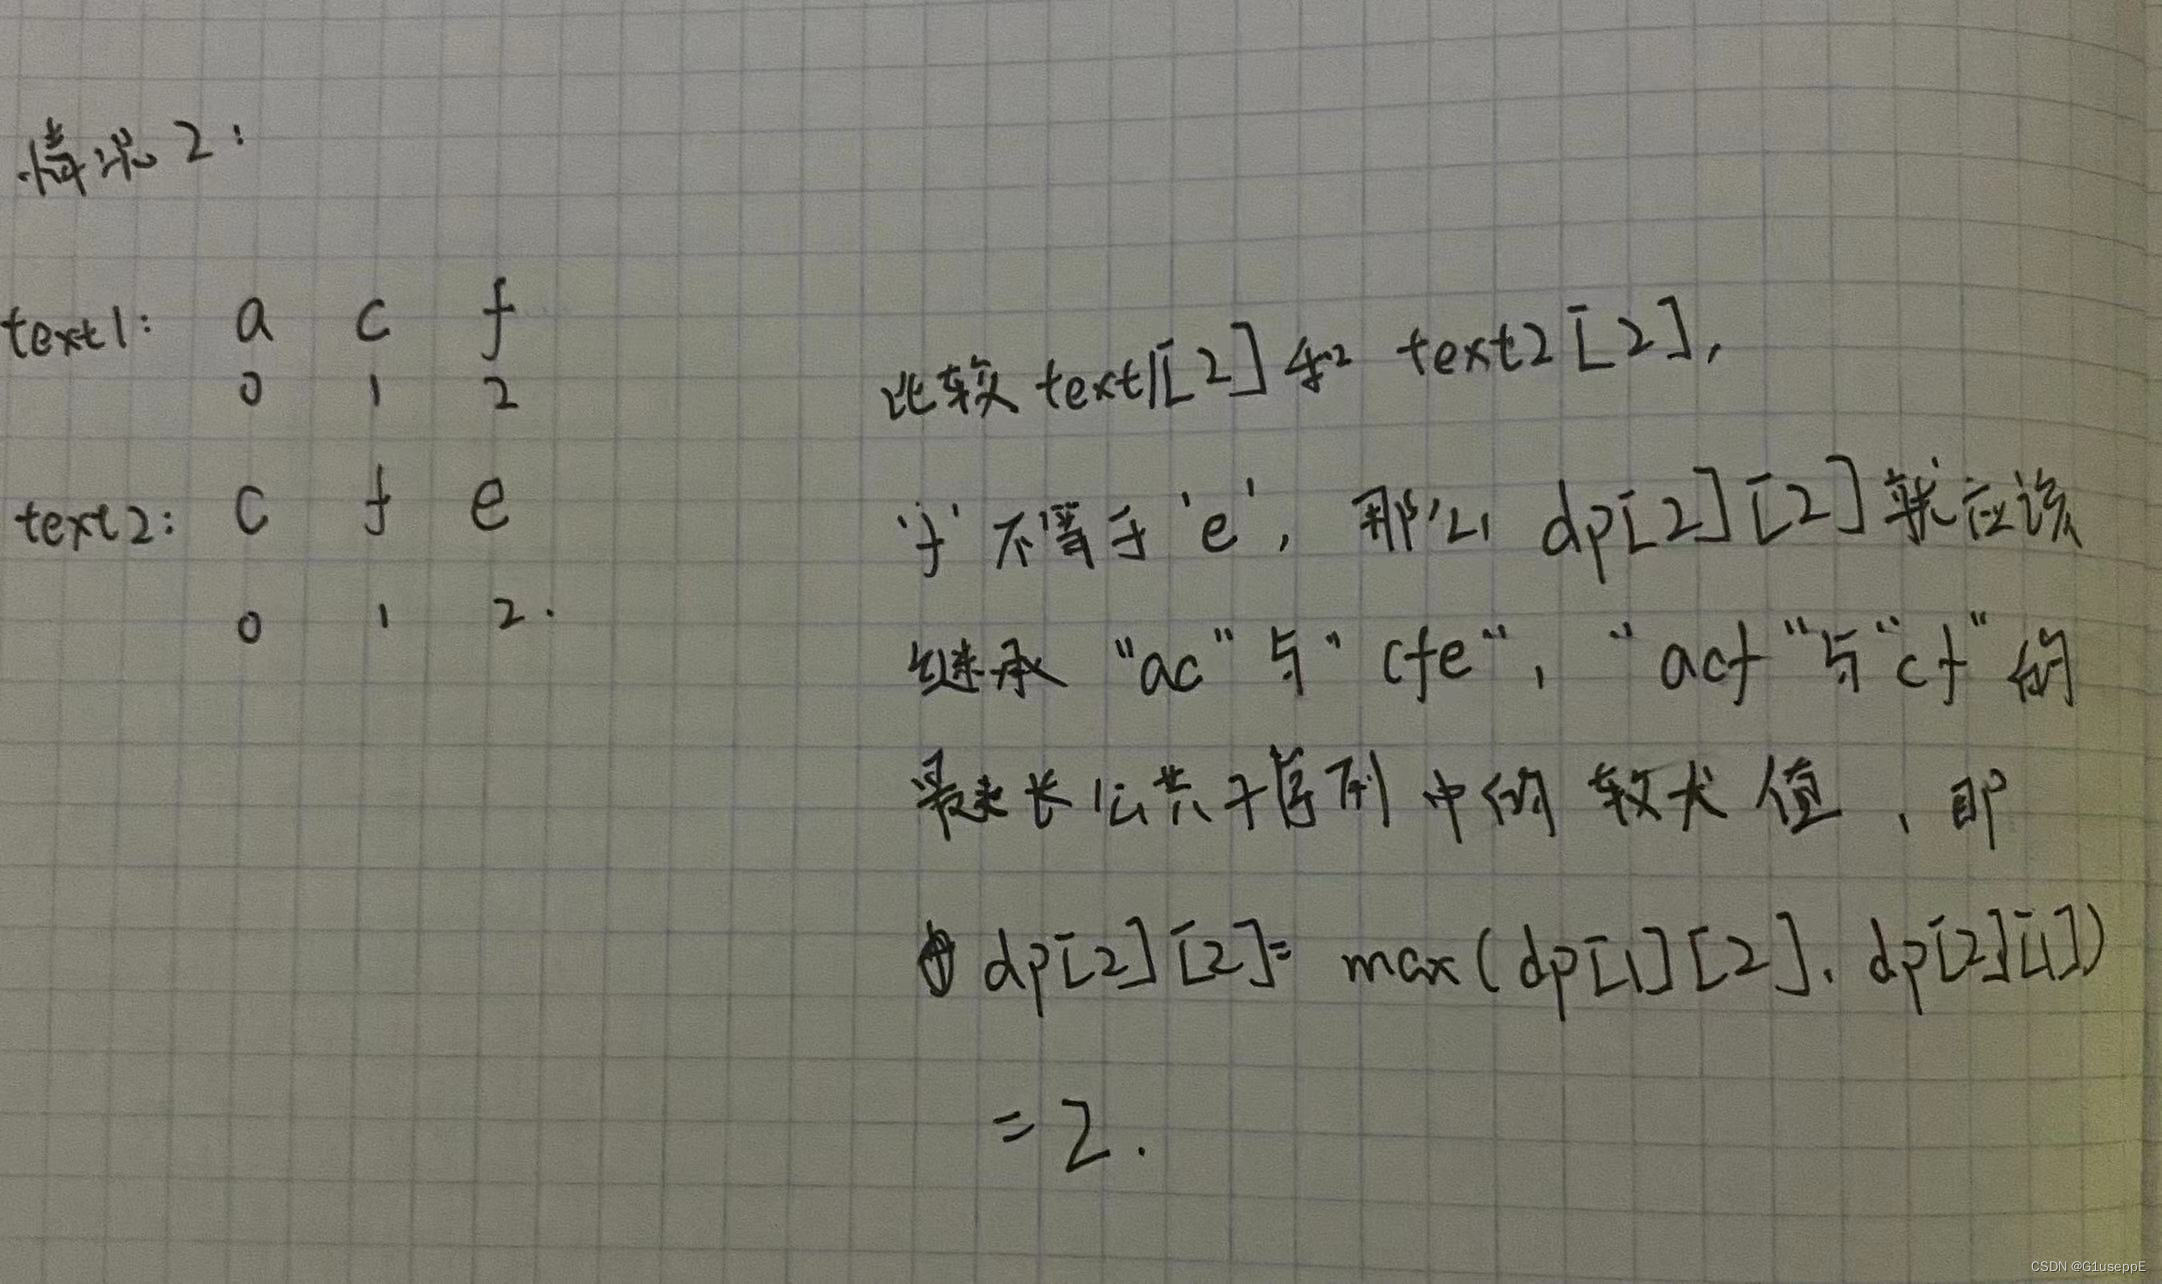 情况2：
text1: a c f
0 1 2
text2: c f e
0 1 2.
比较text1[2]和 text2[2],
'f'不等于'e', 那么 dp[2][2]就应该
继承 "ac"与"cfe", "acf"与"cf"的
最长公共子序列中的较大值，即
dp[2][2]= max(dp[1][2], dp[2][1])
= 2.
CSDN @G1useppE